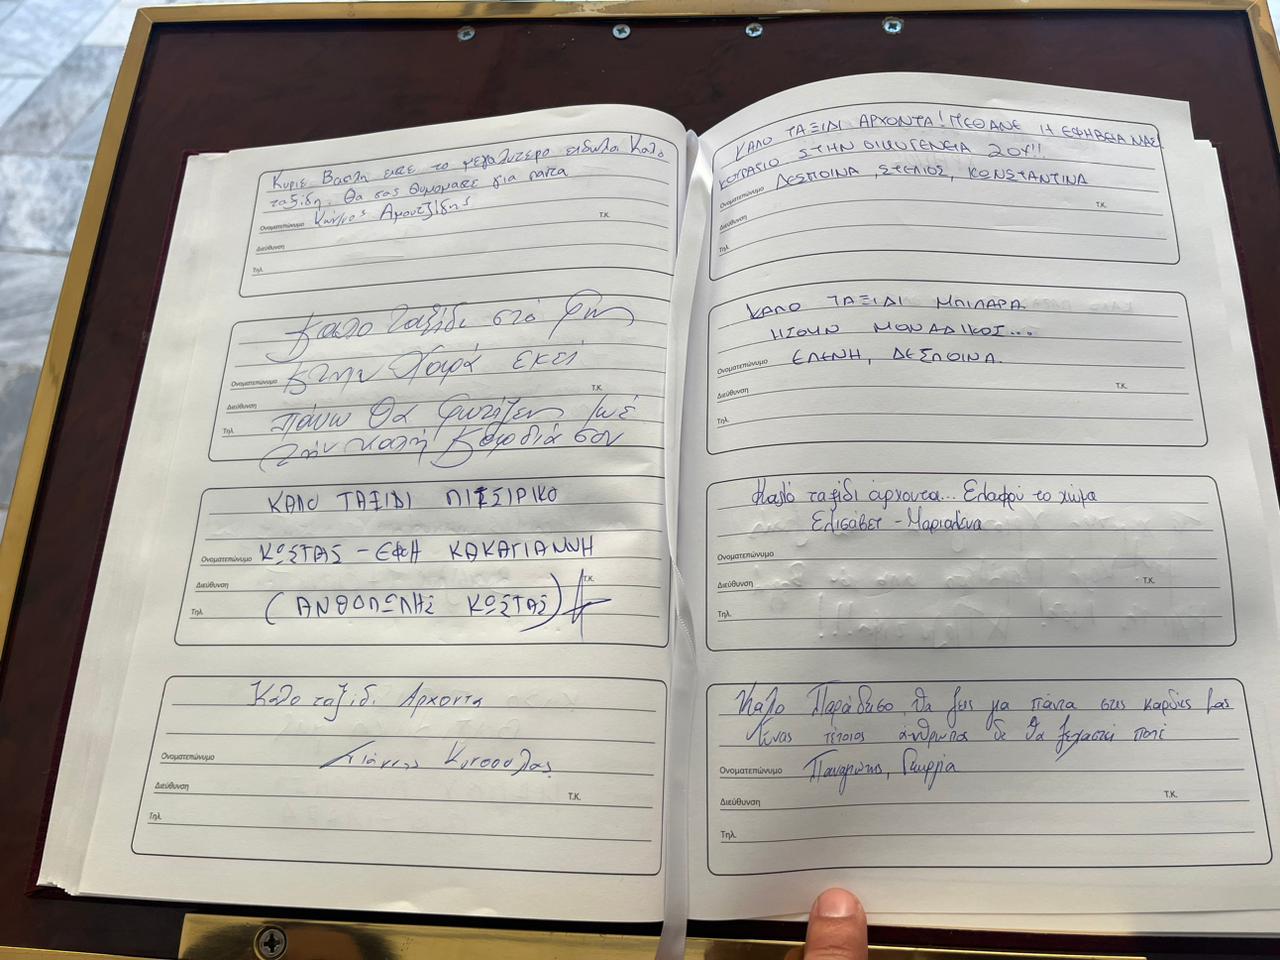 Κύριε Βασίλη είστε το μεγαλύτερο είδωλο Καλο
ταξίδη. Θα σας θυμομαστε για παντα
Ονοματεπώνυμο Αμουτζίδης
Τ.Κ.
Διεύθυνση
Τηλ.
Καλο ταξίδι στό φως
στην Χαρά εκεί
Ονοματεπώνυμο
Τ.Κ.
πάνω θα φωτίζεις με
Διεύθυνση
την καλή καρδιά σου
Τηλ.
ΚΑΛΟ ΤΑΞΙΔΙ ΠΙΣΣΙΡΙΚΟ
Ονοματεπώνυμο ΚΩΣΤΑΣ - ΕΦΗ ΚΑΚΑΓΙΑΝΝΗ
Διεύθυνση Τ.Κ.
Τηλ. (ΑΝΘΟΠΩΛΗΣ ΚΩΣΤΑΣ)
Καλο ταξίδι Αρχοντα
Ονοματεπώνυμο Γιάννης
Διεύθυνση Τ.Κ.
Τηλ.
ΚΑΛΟ ΤΑΞΙΔΙ ΑΡΧΟΝΤΑ! ΠΕΘΑΝΕ Η ΕΦΗΒΕΙΑ ΜΑΣ!
ΚΟΥΡΑΓΙΟ ΣΤΗΝ ΟΙΚΟΓΕΝΕΙΑ ΣΟΥ!!
Ονοματεπώνυμο ΔΕΣΠΟΙΝΑ, ΣΤΕΛΙΟΣ, ΚΩΝΣΤΑΝΤΙΝΑ
Διεύθυνση Τ.Κ.
Τηλ.
ΚΑΛΟ ΤΑΞΙΔΙ ΜΠΙΛΑΡΑ
ΗΣΟΥΝ ΜΟΝΑΔΙΚΟΣ...
Ονοματεπώνυμο ΕΛΕΝΗ, ΔΕΣΠΟΙΝΑ.
Διεύθυνση Τ.Κ.
Τηλ.
Καλό ταξίδι άρχοντα... Ελαφρύ το χώμα
Ελισάβετ - Μαριαλένα
Ονοματεπώνυμο
Διεύθυνση Τ.Κ.
Τηλ.
Καλο Παράδεισο θα ζεις για πάντα στις καρδιές μας
Ένας τέτοιος άνθρωπος δε θα ξεχαστεί ποτέ
Ονοματεπώνυμο Παναγιώτης, Γεωργία
Διεύθυνση Τ.Κ.
Τηλ.